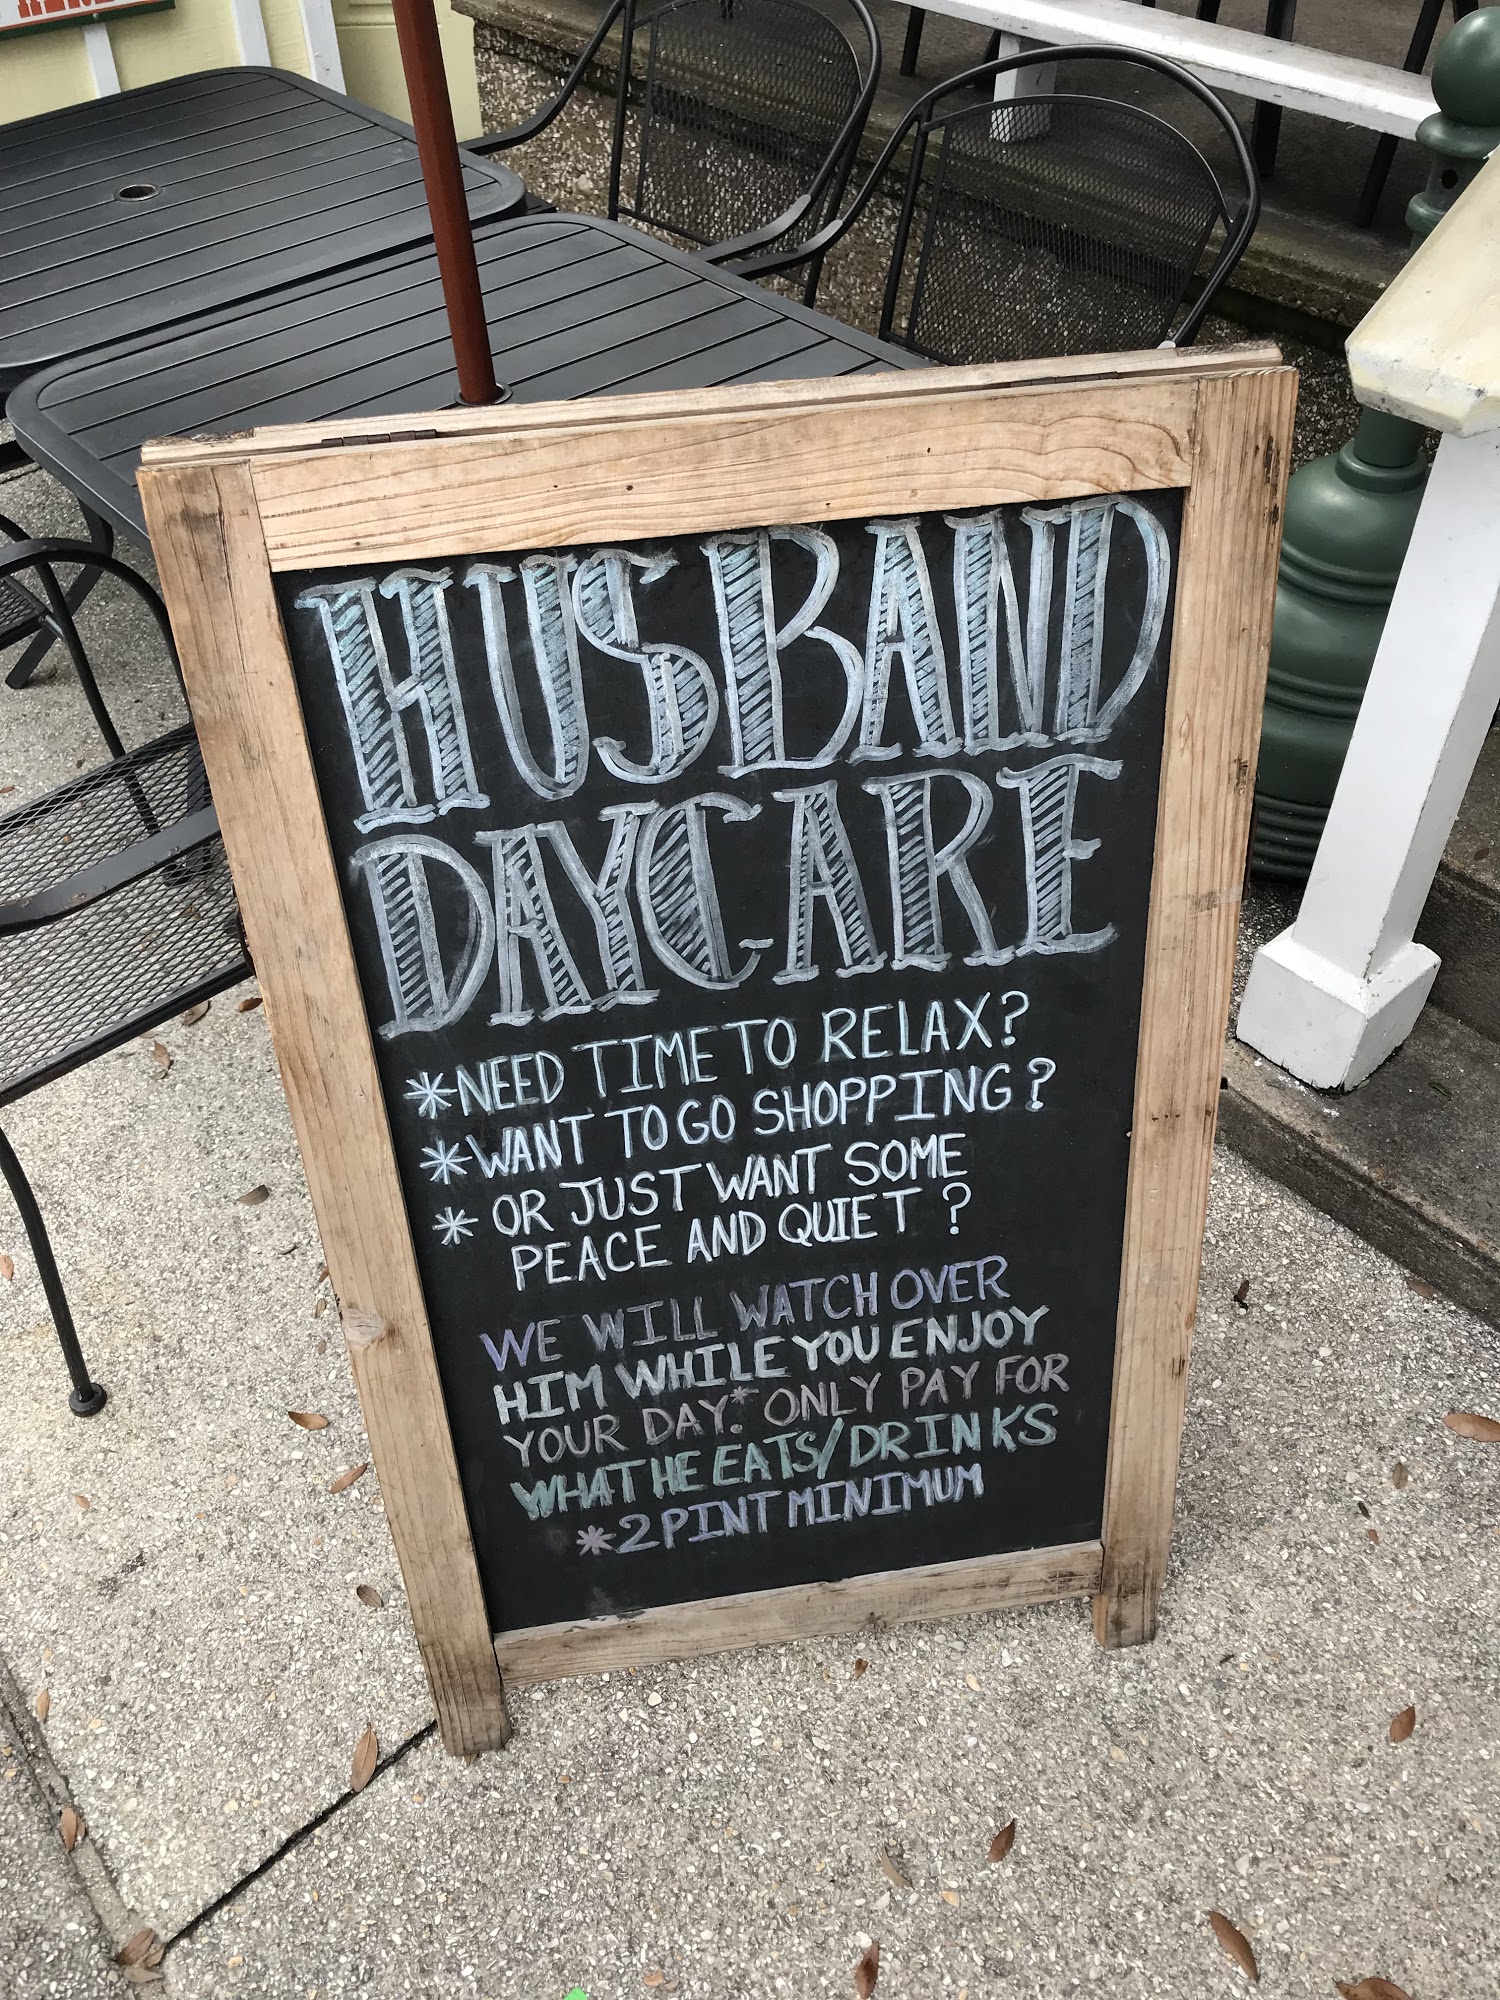 HUSBAND
DAYCARE
*NEED TIME TO RELAX?
*WANT TO GO SHOPPING?
* OR JUST WANT SOME
PEACE AND QUIET?
WE WILL WATCH OVER
HIM WHILE YOU ENJOY
YOUR DAY.* ONLY PAY FOR
WHAT HE EATS/DRINKS
*2 PINT MINIMUM